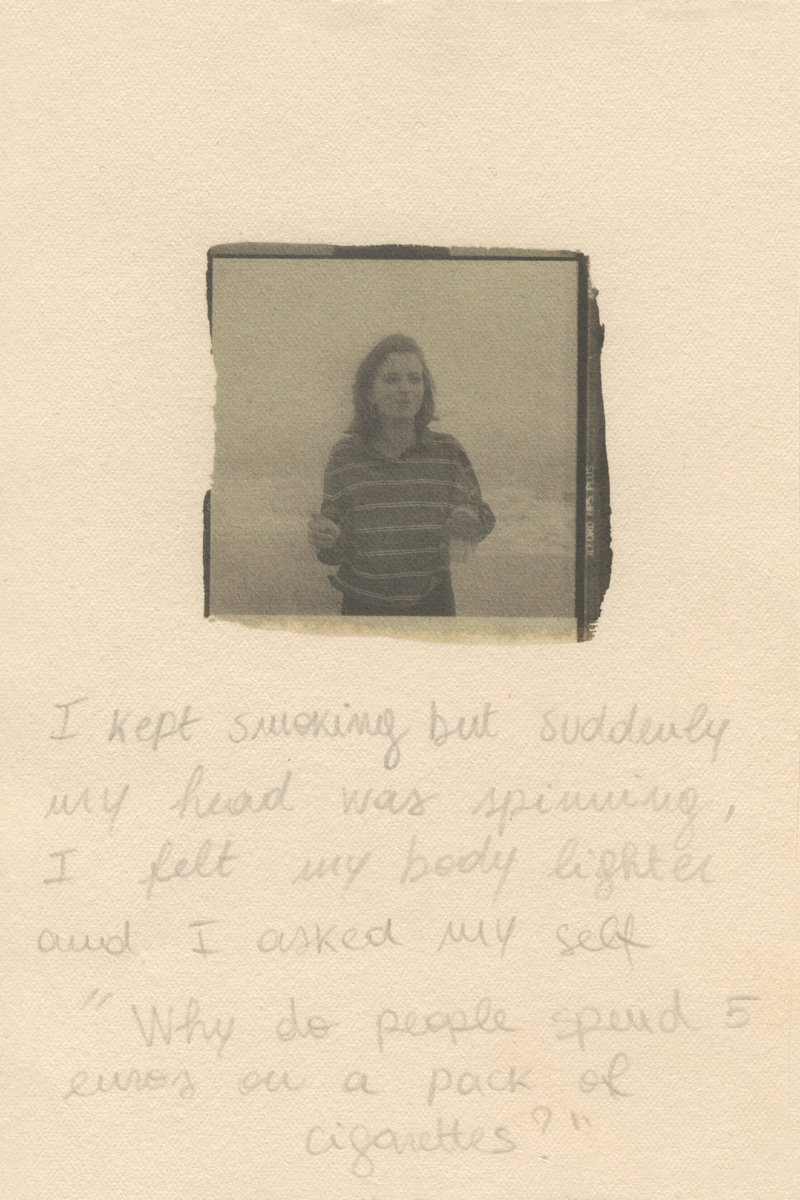 ILFORD HP5 PLUS
I kept smoking but suddenly
my head was spinning,
I felt my body lighter
and I asked my self
"Why do people spend 5
euros on a pack of
cigarettes?"